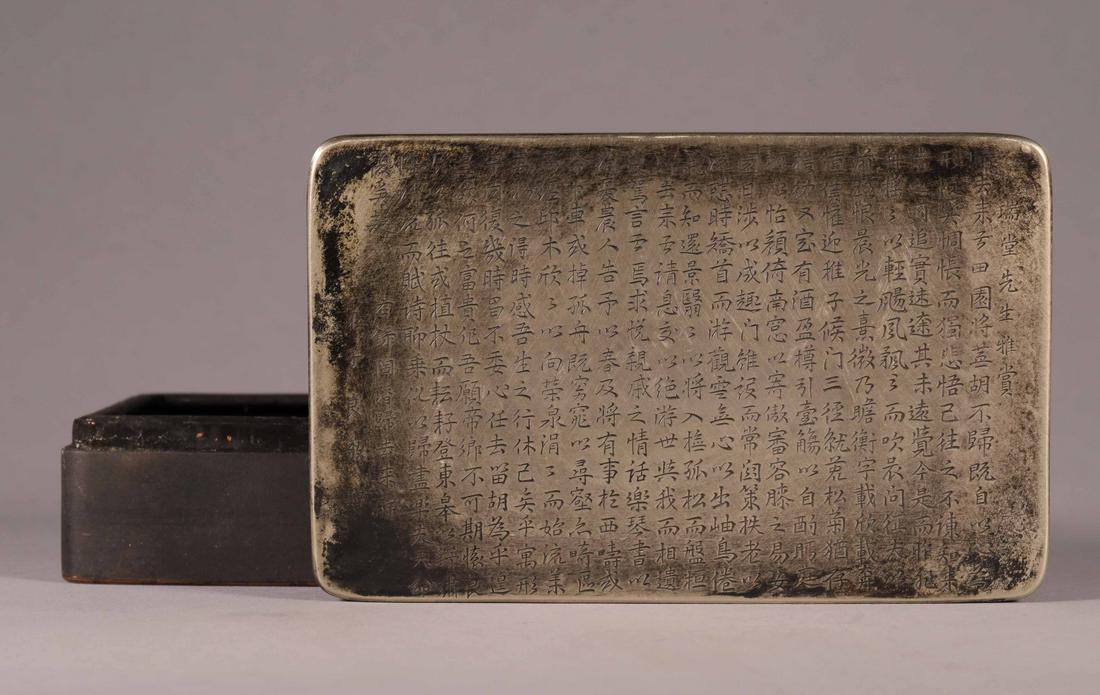 瑞堂先生雅賞
去来兮田園將蕪胡不歸既自以心為
形役奚惆悵而獨悲悟已往之不諫知来
之可追實迷途其未遠覺今是而昨非
舟摇〻以輕颺風飄〻而吹衣问征夫
前路恨晨光之熹微乃瞻衡宇載欣載奔
僮僕懽迎稚子候门三徑就荒松菊猶存
幼入室有酒盈樽引壺觴以自酌眄庭
以怡顏倚南窓以寄傲審容膝之易安
日涉以成趣门雖設而常関策扶老以
流憩時矯首而游觀雲無心以出岫鳥倦
飛而知還景翳〻以將入撫孤松而盤桓
去来兮请息交以絶游世與我而相遺
駕言兮焉求悦親戚之情話樂琴書以
憂農人告予以春及將有事於西疇或
車或棹孤舟既窈窕以尋壑亦崎嶇
經邱木欣〻以向榮泉涓〻而始流羡
之得時感吾生之行休已矣乎寓形
内復幾時曷不委心任去留胡為乎遑
欲何之富貴非吾願帝鄉不可期懷良
以孤往或植杖而耘耔登東皋以舒嘯
流而賦诗聊乘化以歸盡樂夫天命
奚 右 陶 歸去来